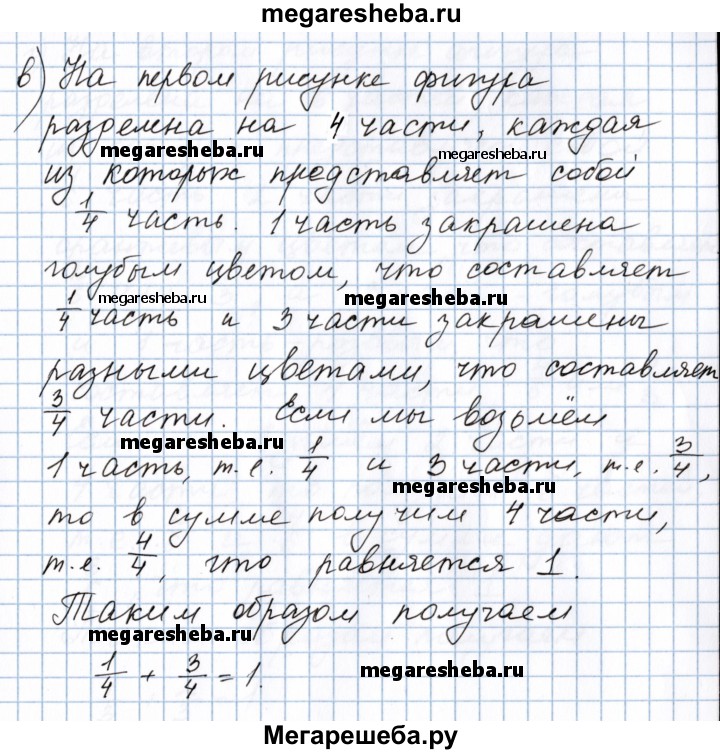 megaresheba.ru
в) На первом рисунке фигура
разделена на 4 части, каждая
megaresheba.ru megaresheba.ru
из которых представляет собой
1/4 часть. 1 часть закрашена
голубым цветом, что составляет
megaresheba.ru megaresheba.ru
1/4 часть и 3 части закрашены
разными цветами, что составляет
3/4 части. Если мы возьмём
megaresheba.ru
1 часть, т.е. 1/4 и 3 части, т.е. 3/4,
megaresheba.ru
то в сумме получим 4 части,
т.е. 4/4, что равняется 1.
Таким образом получаем
megaresheba.ru
1/4 + 3/4 = 1.
megaresheba.ru
Мегарешеба.ру